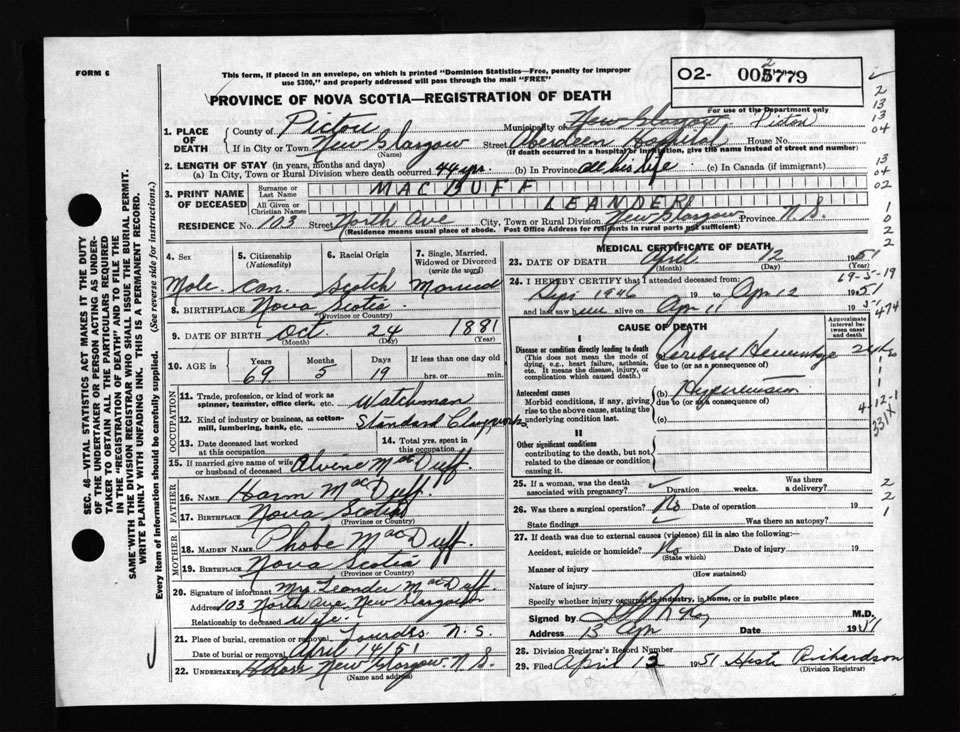 FORM 6
This form, if placed in an envelope, on which is printed "Dominion Statistics—Free, penalty for improper
use $300," and properly addressed will pass through the mail "FREE"
O2- 779
For use of the Department only
PROVINCE OF NOVA SCOTIA—REGISTRATION OF DEATH
1. PLACE OF DEATH
County of Pictou Municipality of New Glasgow Pictou
If in City or Town New Glasgow Street Aberdeen Hospital House No.
(Name) (If death occurred in a hospital or institution, give the name instead of street and number)
2. LENGTH OF STAY (in years, months and days)
(a) In City, Town or Rural Division where death occurred 44 yrs. (b) In Province all his life (c) In Canada (if immigrant)
3. PRINT NAME OF DECEASED
Surname or Last Name MACDUFF
All Given or Christian Names LEANDER
RESIDENCE No. 103 Street North Ave City, Town or Rural Division New Glasgow Province N.S.
(Residence means usual place of abode. Post Office Address for residents in rural parts not sufficient)
4. Sex 5. Citizenship (Nationality) 6. Racial Origin 7. Single, Married, Widowed or Divorced (write the word)
Male Can. Scotch Married
8. BIRTHPLACE Nova Scotia
(Province or Country)
9. DATE OF BIRTH Oct. 24 1881
(Month) (Day) (Year)
10. AGE in Years Months Days If less than one day old
69 5 19 hrs. or min.
OCCUPATION
11. Trade, profession, or kind of work as spinner, teamster, office clerk, etc. Watchman
12. Kind of industry or business, as cotton-mill, lumbering, bank, etc. Standard Clayworks
13. Date deceased last worked at this occupation
14. Total yrs. spent in this occupation
15. If married give name of wife or husband of deceased Alvine MacDuff
FATHER
16. NAME MacDuff.
17. BIRTHPLACE Nova Scotia
(Province or Country)
MOTHER
18. MAIDEN NAME Phobe MacDuff.
19. BIRTHPLACE Nova Scotia
(Province or Country)
20. Signature of informant Mrs Leander MacDuff.
Address 103 North Ave. New Glasgow
Relationship to deceased Wife.
21. Place of burial, cremation or removal Lourdes. N.S.
Date of burial or removal April 14/51
22. UNDERTAKER New Glasgow. N.S.
(Name and address)
MEDICAL CERTIFICATE OF DEATH
23. DATE OF DEATH April 12 1951
(Month) (Day) (Year)
69-5-19
24. I HEREBY CERTIFY that I attended deceased from:
Sept 1946 19 to Apr 12 1951
and last saw alive on Apr 11 19 51
474
CAUSE OF DEATH
Approximate interval between onset and death
I
Disease or condition directly leading to death
(This does not mean the mode of dying, e.g., heart failure, asthenia, etc. It means the disease, injury, or complication which caused death.)
Cerebral Hemorrhage
due to (or as a consequence of)
Antecedent causes
Morbid conditions, if any, giving rise to the above cause, stating the underlying condition last.
(b) Hypertension
due to (or as a consequence of)
(c)
4-12-1
331X
II
Other significant conditions
contributing to the death, but not related to the disease or condition causing it.
25. If a woman, was the death associated with pregnancy? Duration weeks. Was there a delivery?
26. Was there a surgical operation? No Date of operation 19
State findings Was there an autopsy?
27. If death was due to external causes (violence) fill in also the following:—
Accident, suicide or homicide? No Date of injury 19
(State which)
Manner of injury
(How sustained)
Nature of injury
Specify whether injury occurred in industry, in home, or in public place
Signed by M.D.
Address 13 Apr Date 1951
28. Division Registrar's Record Number
29. Filed April 13 1951 Richardson
(Division Registrar)
SEC. 46—VITAL STATISTICS ACT MAKES IT THE DUTY
OF THE UNDERTAKER OR PERSON ACTING AS UNDER-
TAKER TO OBTAIN ALL THE PARTICULARS REQUIRED
IN THE "REGISTRATION OF DEATH" AND TO FILE THE
SAME WITH THE DIVISION REGISTRAR WHO SHALL ISSUE THE BURIAL PERMIT.
WRITE PLAINLY WITH UNFADING INK. THIS IS A PERMANENT RECORD.
Every item of information should be carefully supplied. (See reverse side for instructions.)
2
13
13
04
13
04
02
1
0
2
2
2
2
1